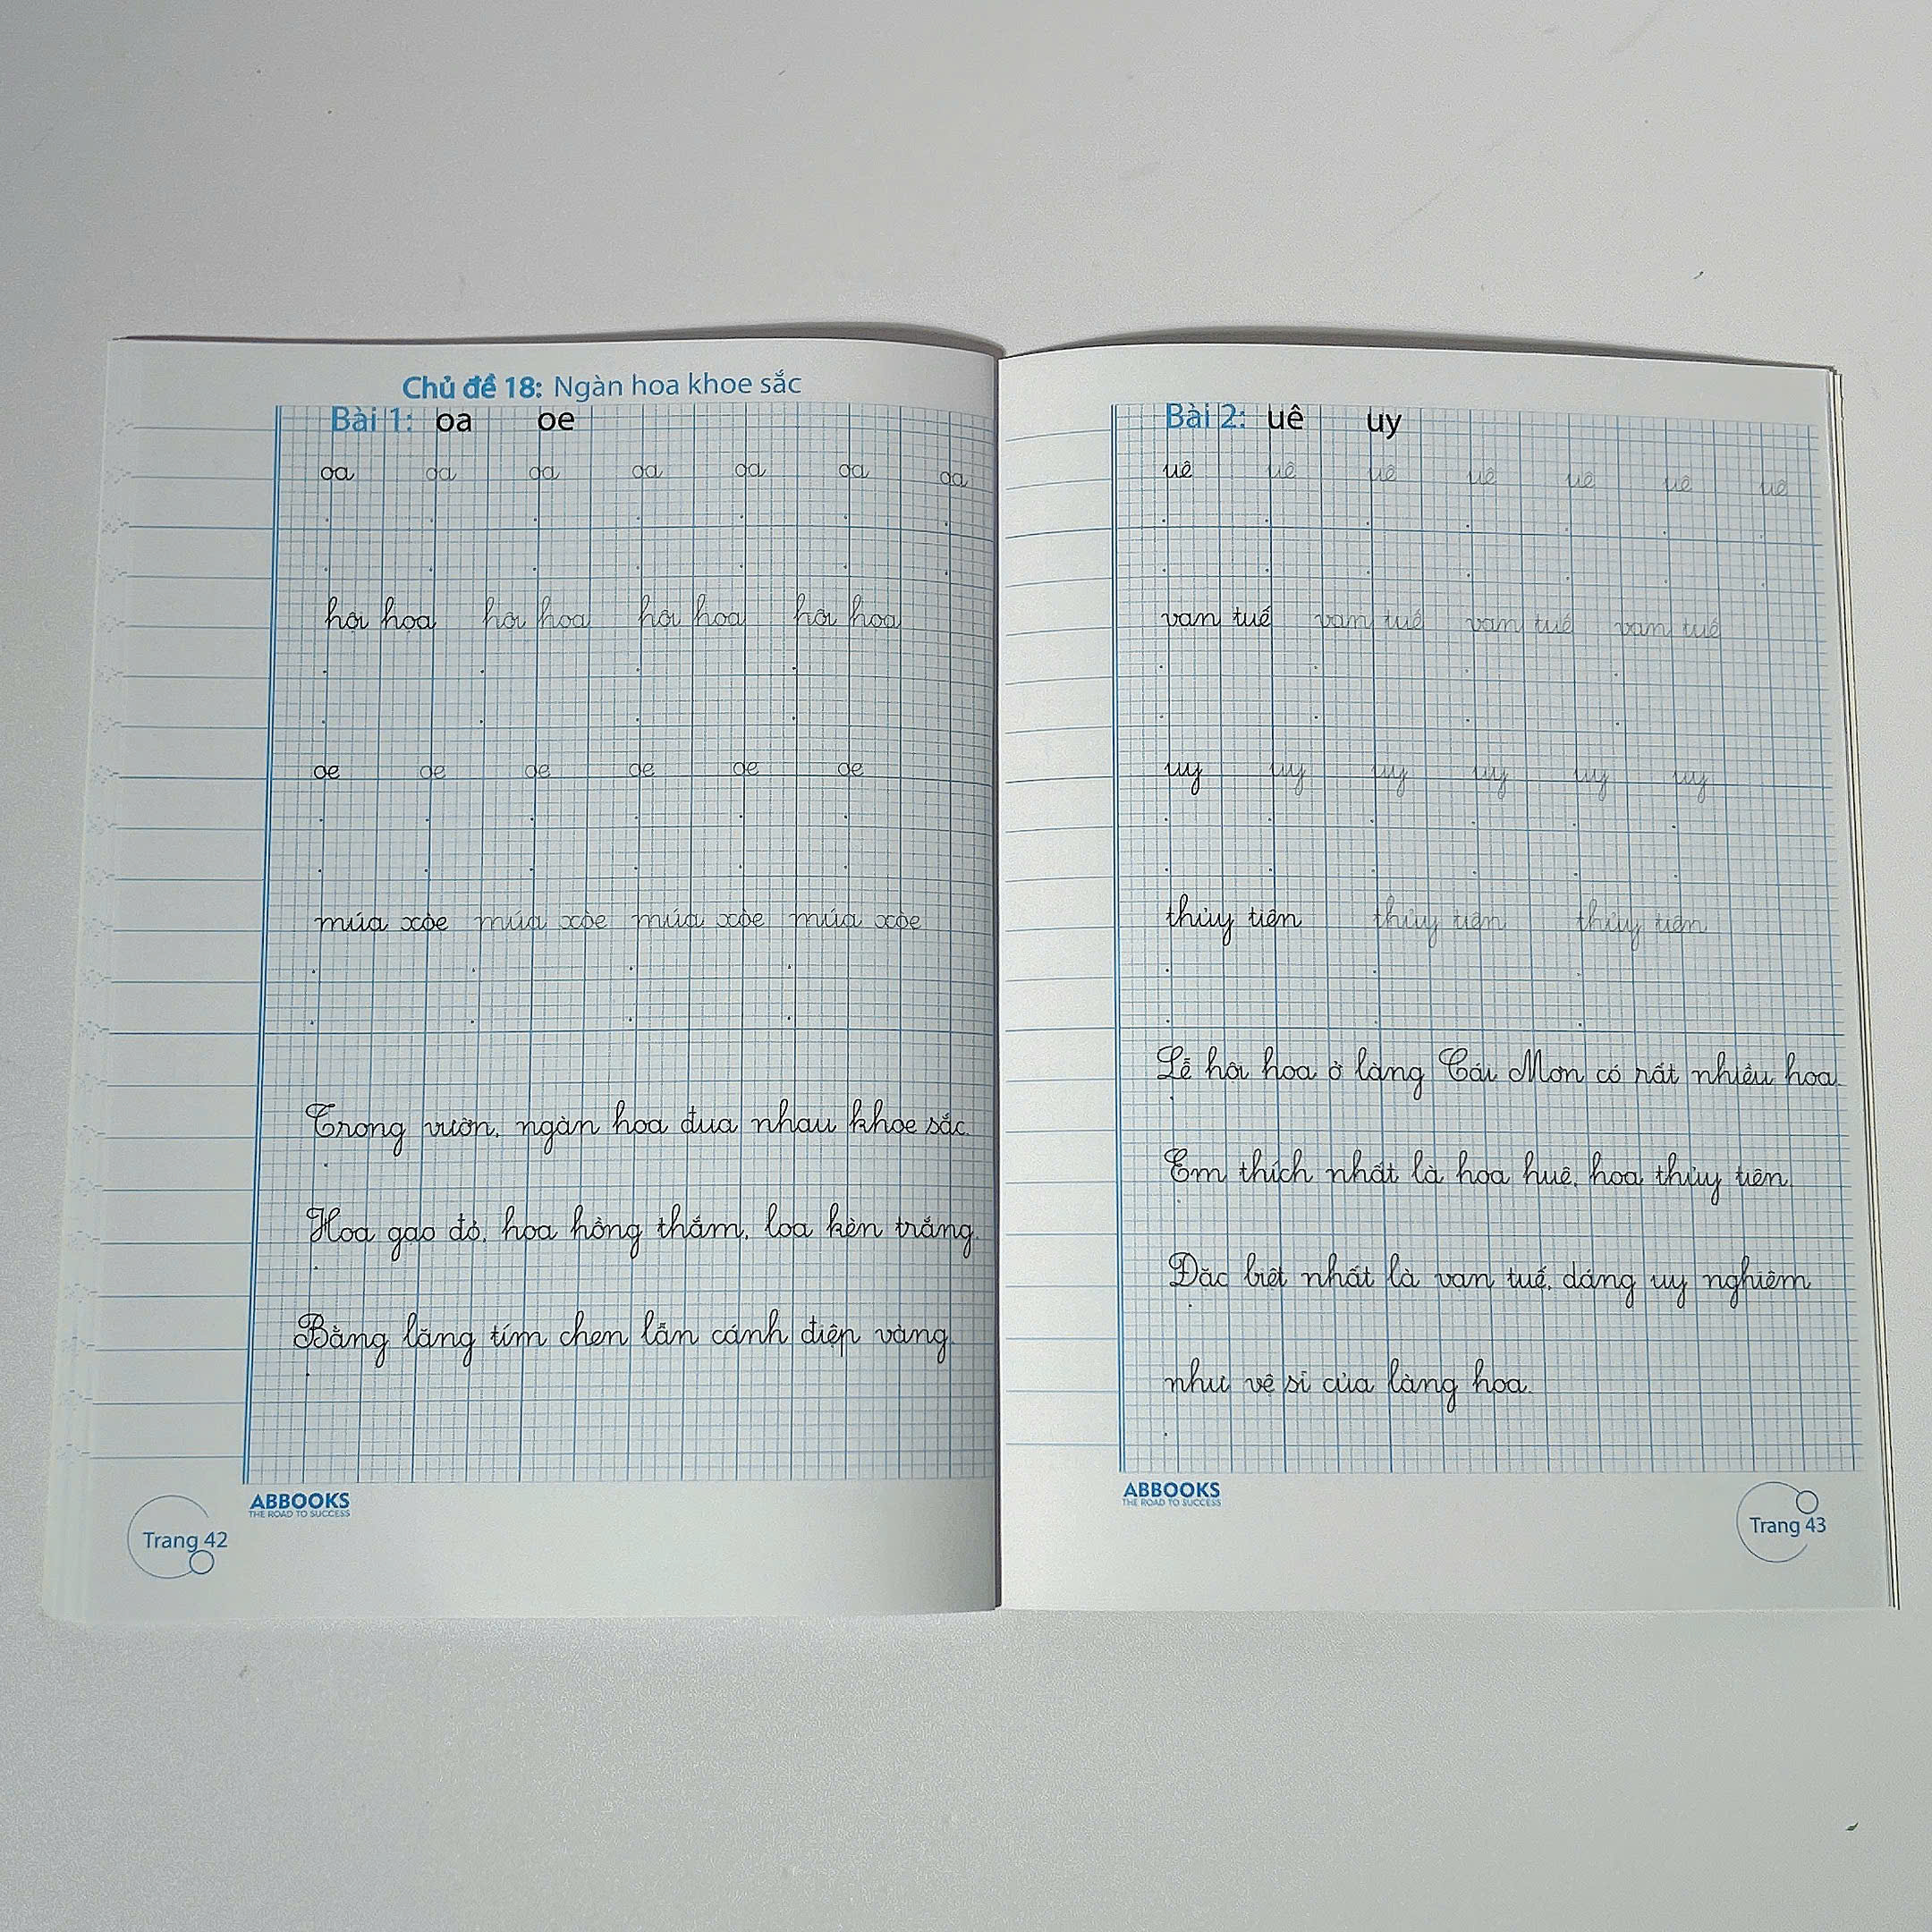 Chủ đề 18: Ngàn hoa khoe sắc
Bài 1: oa oe
oa oa oa oa oa oa oa
hội hoạ hội hoạ hội hoạ hội hoạ
oe oe oe oe oe oe
múa xòe múa xòe múa xòe múa xòe
Trong vườn, ngàn hoa đua nhau khoe sắc.
Hoa gạo đỏ, hoa hồng thắm, loa kèn trắng.
Bằng lăng tím chen lẫn cánh điệp vàng.
ABBOOKS
THE ROAD TO SUCCESS
Trang 42
Bài 2: uê uy
uê uê uê uê uê uê uê
vạn tuế vạn tuế vạn tuế vạn tuế
uy uy uy uy uy uy
thủy tiên thủy tiên thủy tiên
Lễ hội hoa ở làng Cái Mơn có rất nhiều hoa.
Em thích nhất là hoa huệ, hoa thủy tiên.
Đặc biệt nhất là vạn tuế, dáng uy nghiêm
như vệ sĩ của làng hoa.
ABBOOKS
THE ROAD TO SUCCESS
Trang 43